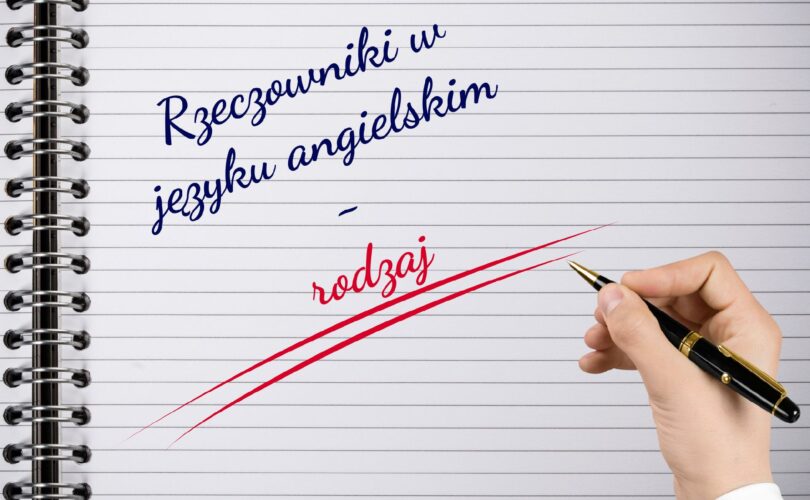 Rzeczowniki w
języku angielskim
-
rodzaj